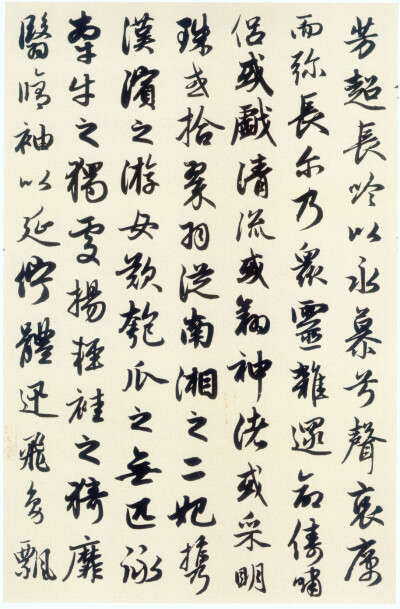 芳超長吟以永慕兮聲哀厲
而弥長尔乃眾靈雜遝命儔嘯
侶或戲清流或翔神渚或采明
珠或拾翠羽從南湘之二妃攜
漢濱之游女歎匏瓜之無匹詠
牽牛之獨處揚輕袿之猗靡
翳脩袖以延佇體迅飛鳧飄